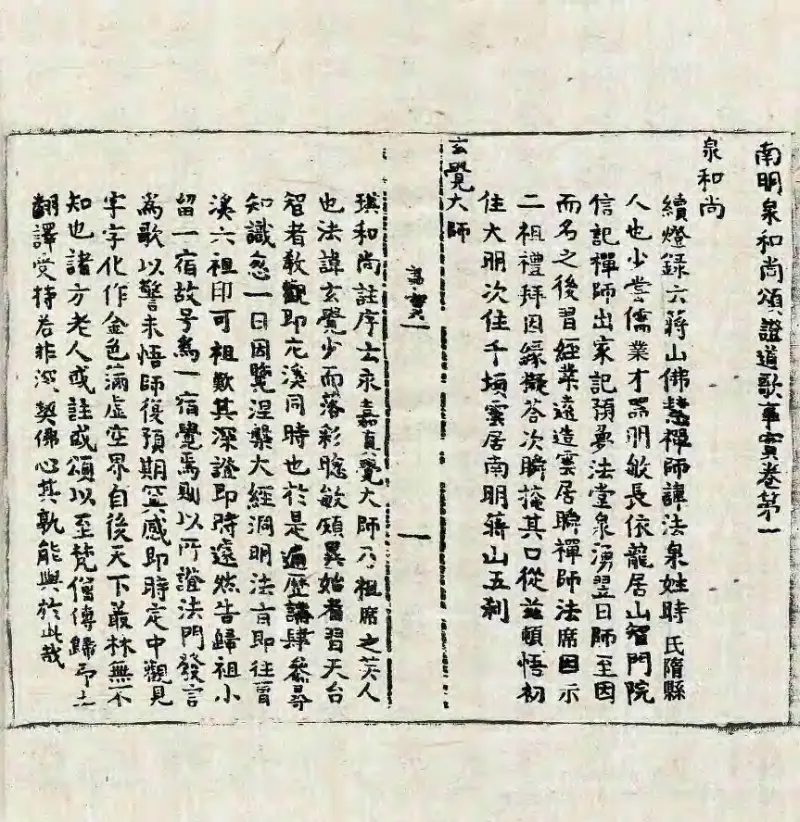 南明泉和尚頌證道歌事實卷第一
泉和尚
續燈錄六蔣山佛慧禪師諱法泉姓時氏隋縣
人也少甞儒業才器明敏長依龍居山智門院
信記禪師出家記預夢法堂泉湧翌日師至因
而名之後習經業遠造雲居曉禪師法席因示
二祖禮拜因緣擬荅次瞬掩其口從茲頓悟初
住大明次住千頃雲居南明蔣山五刹
玄覺大師
琪和尚註序云永嘉真覺大師乃祖席之英人
也法諱玄覺少而落彩聰敏頗異始者習天台
智者敎觀即左溪同時也於是遍歷講肆叅尋
知識忽一日因覽涅槃大經洞明法旨即往曹
溪六祖印可祖歎其深證即時遠然告歸祖小
留一宿故号爲一宿覺焉則以所證法門發言
爲歌以警未悟師復預期冥感即時定中觀見
字字化作金色滿虛空界自後天下叢林無不
知也諸方老人或註或頌以至梵僧傳歸印土
翻譯受持若非深契佛心其孰能與於此哉
一